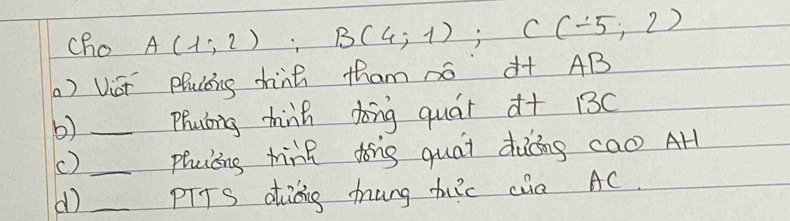 Cho A(1;2) ; B(4;1) ; C(-5; 2)
a) Viết phương trình tham số đt AB
b) __ Phương trình tổng quát đt BC
c) __ phương trình tổng quát đường cao AH
d) __ PTTS đường trung trực của AC.